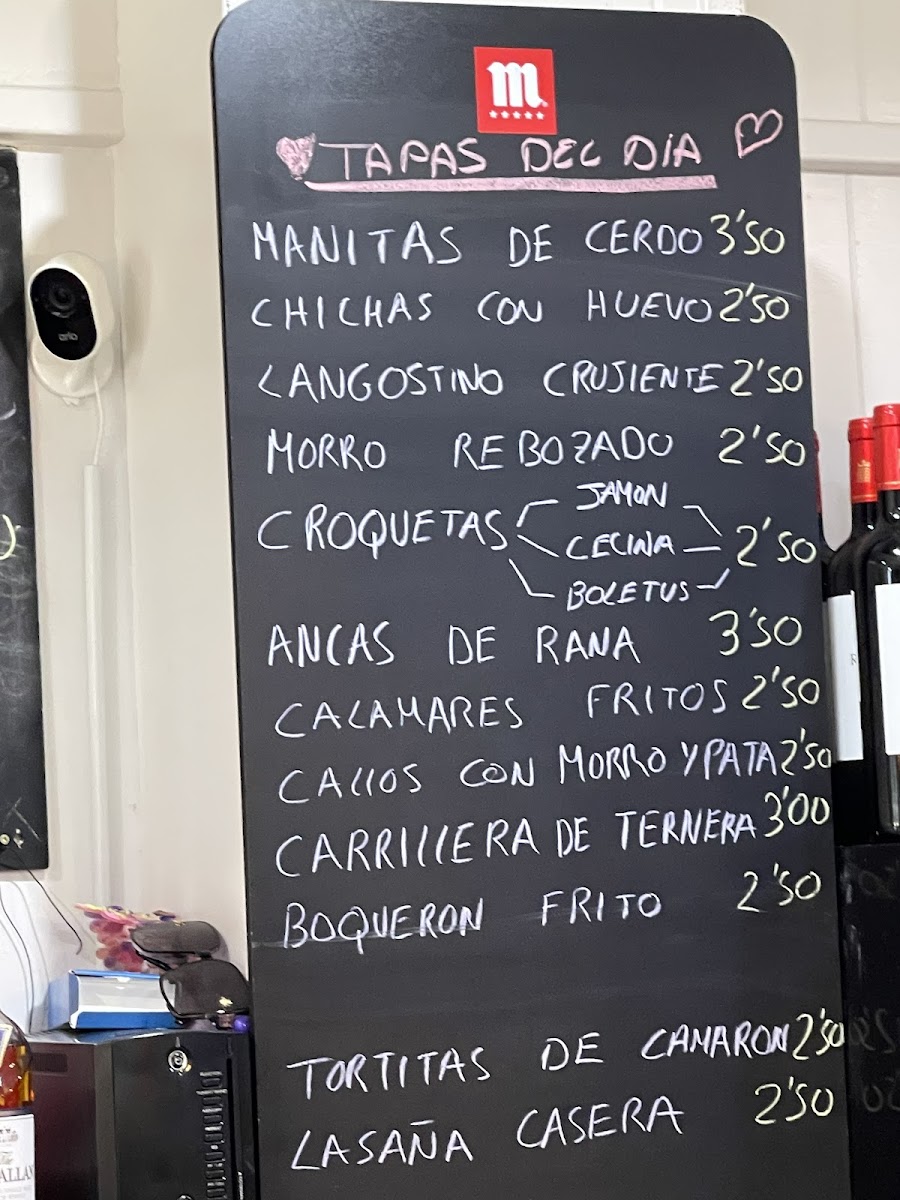 m
★★★★★
TAPAS DEL DIA
MANITAS DE CERDO 3'50
CHICHAS CON HUEVO 2'50
LANGOSTINO CRUJIENTE 2'50
MORRO REBOZADO 2'50
JAMON
CROQUETAS CECINA 2'50
BOLETUS
ANCAS DE RANA 3'50
CALAMARES FRITOS 2'50
CALLOS CON MORRO Y PATA 2'50
CARRILLERA DE TERNERA 3'00
BOQUERON FRITO 2'50
TORTITAS DE CAMARON 2'50
LASAÑA CASERA 2'50
arlo